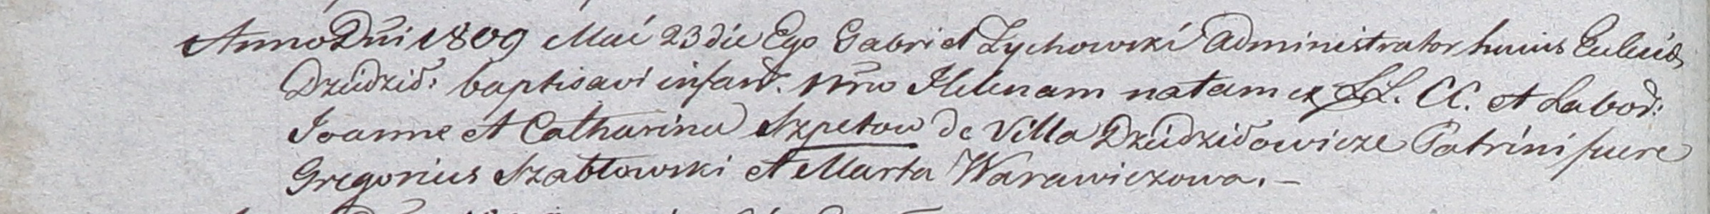 Anno Dni 1809 Mai 23 die Ego Gabriel Zychowski Administrator huius Eclesiæ
Dziedził: baptisavi infant. Nrõ Helenam natam ex LL. CC. et Labor:
Joanne et Catharina Szpetow de Villa Dziedziłowicze Patrini fuere
Gregorius Szabłowski et Marta Warawiczowa. –